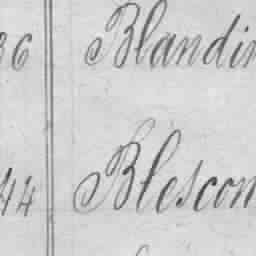 36 Blandin
44 Blescon